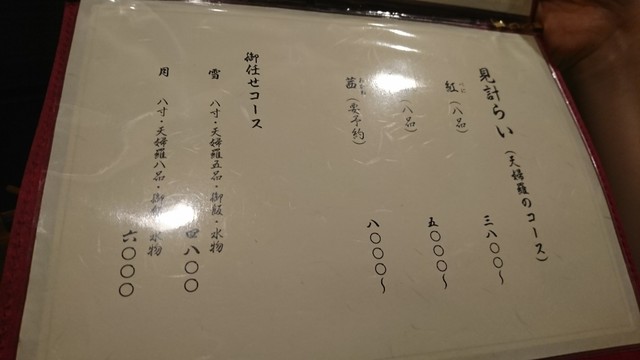 見計らい（天婦羅のコース）
紅（八品） 三八〇〇〜
（八品） 五〇〇〇〜
茜（要予約） 八〇〇〇〜
御任せコース
雪 八寸・天婦羅五品・御飯・水物
四八〇〇
月 八寸・天婦羅八品・御飯・水物
六〇〇〇